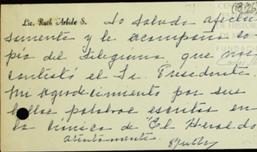 Lic. Raúl Toledo S. Lo saluda afectuo
samente y le acompaña co
pia del telegrama, que nos
contestó el Sr. Presidente.
Mi agradecimiento por sus
bellas palabras escritas en
la crónica de "El Heraldo
atentamente.